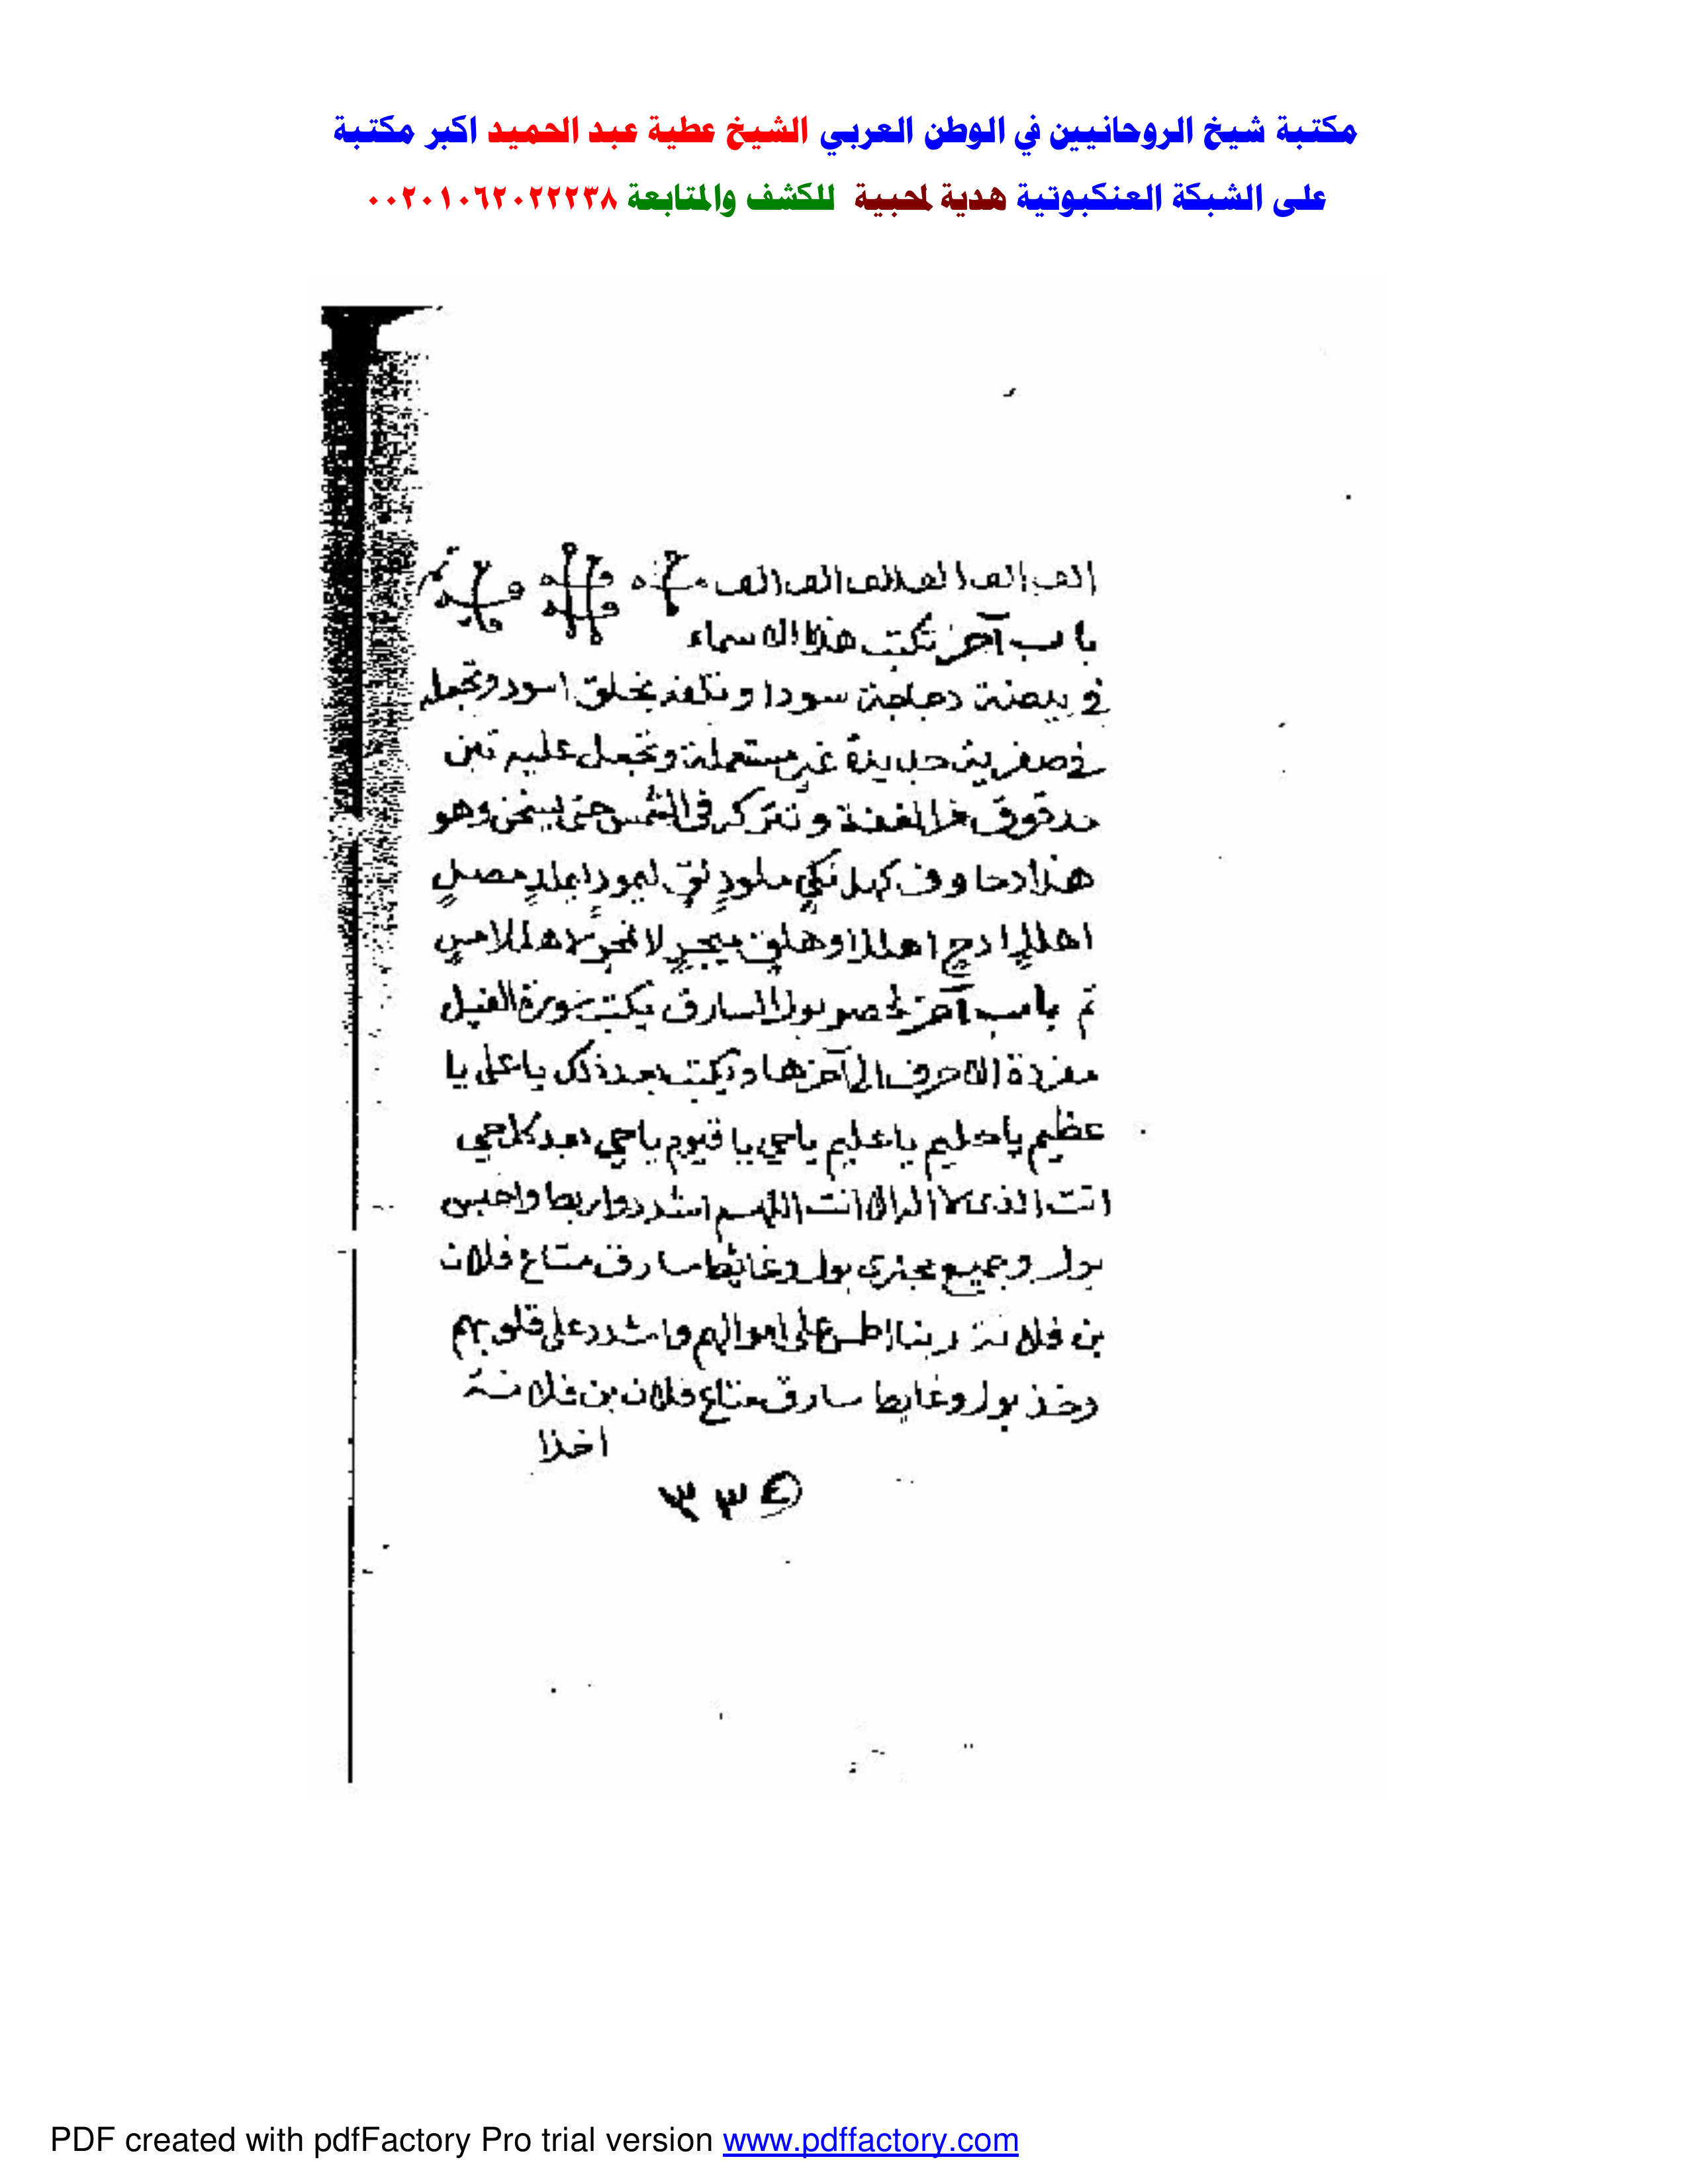 مكتبة شيخ الروحانيين في الوطن العربي الشيخ عطية عبد الحميد اكبر مكتبة
على الشبكة العنكبوتية هدية لمحبية للكشف والمتابعة ٠٠٢٠١٠٦٢٠٢٢٢٣٨
الف الف الف الف الف الف
باب آخر تكتب هذا الاسماء
في بيضة دجاجة سودا وتلفه بخلق اسود وتجعل
في صغرية جديدة غير مستعملة وتجعل عليه تبن
مدقوق وتتركه في الشمس حتى يسخن وهو
هذا
تم باب آخر لحصر بول السارق يكتب سورة الفيل
مفردة الاحرف الى آخرها وتكتب بعد ذلك يا على يا
عظيم يا حليم يا عليم يا حي يا قيوم يا حي بعد كل حي
انت الذى لا اله الا انت اللهم اشدد واربط واحبس
بول وجميع مجرى بول وغائط سارق متاع فلان
بن فلانة ربنا اطمس على اموالهم واشدد على قلوبهم
وخذ بول وغايط سارق متاع فلان بن فلانة
اخذا
PDF created with pdfFactory Pro trial version www.pdffactory.com